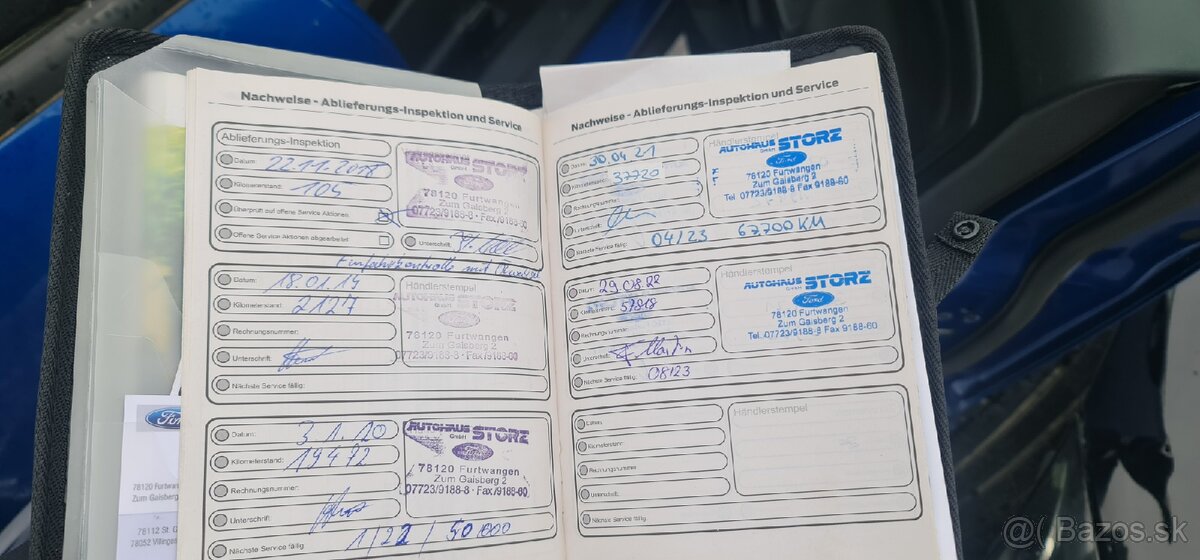 Nachweise - Ablieferungs-Inspektion und Service
Ablieferungs-Inspektion
Datum: 22.11.2018
Kilometerstand: 104
Überprüft auf offene Service Aktionen
Offene Service Aktionen abgearbeitet
Unterschrift:
AUTOHAUS STORZ
GmbH
Ford
78120 Furtwangen
Zum Gaisberg 2
07723/9188-8 · Fax/9188-60
Einfahrkontrolle mit
Datum: 18.01.19
Kilometerstand: 2127
Rechnungsnummer:
Unterschrift:
Nächste Service fällig:
Händlerstempel
AUTOHAUS STORZ
GmbH
Ford
78120 Furtwangen
Zum Gaisberg 2
07723/9188-8 · Fax/9188-60
Datum: 31.1.20
Kilometerstand: 19472
Rechnungsnummer:
Unterschrift:
Nächste Service fällig 1/22 / 50000
AUTOHAUS STORZ
GmbH
Ford
78120 Furtwangen
Zum Gaisberg 2
07723/9188-8 · Fax/9188-60
Nachweise - Ablieferungs-Inspektion und Service
Datum: 30.04.21
Kilometerstand: 37720
Rechnungsnummer:
Unterschrift:
Nächste Service fällig: 04/23 67.700 KM
Händlerstempel
AUTOHAUS STORZ
GmbH
Ford
78120 Furtwangen
Zum Gaisberg 2
Tel. 07723/9188-8 Fax 9188-60
Datum: 29.08.22
Kilometerstand:
Rechnungsnummer:
Unterschrift:
Nächste Service fällig: 08/23
Händlerstempel
AUTOHAUS STORZ
GmbH
Ford
78120 Furtwangen
Zum Gaisberg 2
Tel. 07723/9188-8 Fax 9188-60
Datum:
Kilometerstand:
Rechnungsnummer:
Unterschrift:
Nächste Service fällig:
Händlerstempel
Ford
78120 Furtwa
Zum Gaisberg
78112 St. G
78052 Villingen
@( Bazos.sk